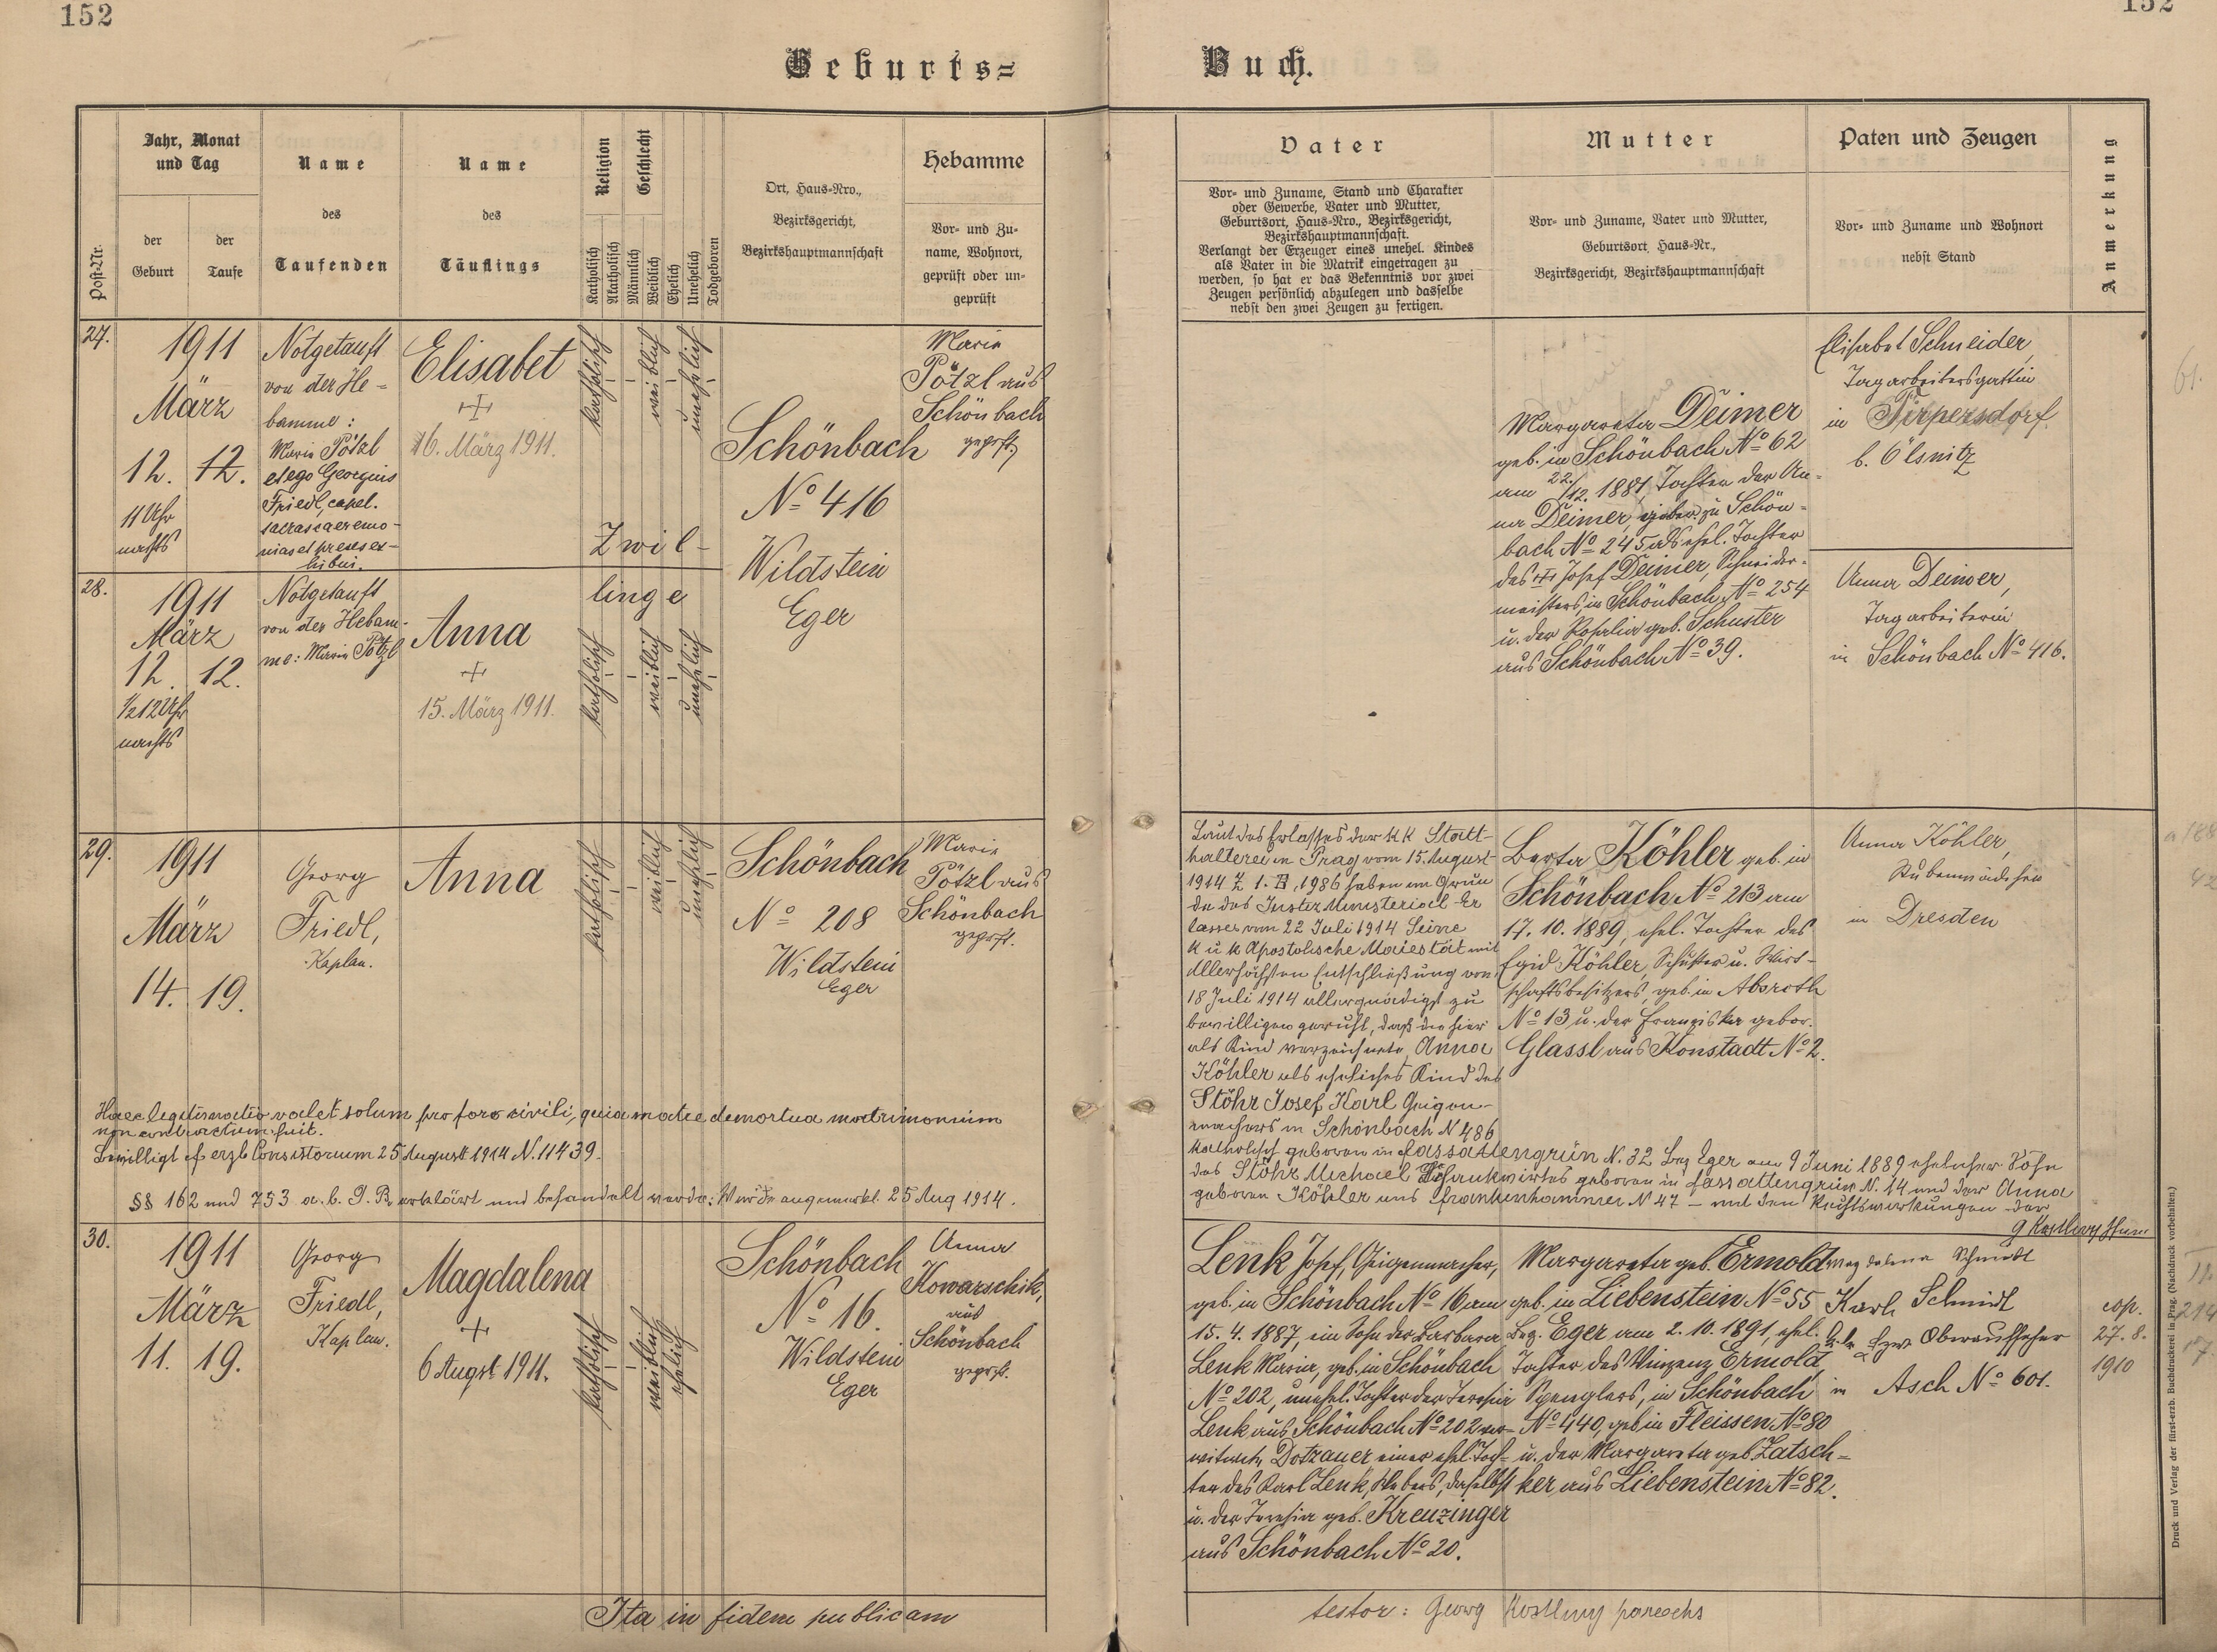 152
152
Geburts=
Buch.
Post-Nr.
Jahr, Monat
und Tag
der
Geburt
der
Taufe
Name
des
Taufenden
Name
des
Täuflings
Religion
Katholisch
Akatholisch
Geschlecht
Männlich
Weiblich
Ehelich
Unehelich
Todgeboren
Ort, Haus-Nro.,
Bezirksgericht,
Bezirkshauptmannschaft
Hebamme
Vor- und Zu-
name, Wohnort,
geprüft oder un-
geprüft
Vater
Vor- und Zuname, Stand und Charakter
oder Gewerbe, Vater und Mutter,
Geburtsort, Haus-Nro., Bezirksgericht,
Bezirkshauptmannschaft.
Verlangt der Erzeuger eines unehel. Kindes
als Vater in die Matrik eingetragen zu
werden, so hat er das Bekenntnis vor zwei
Zeugen persönlich abzulegen und dasselbe
nebst den zwei Zeugen zu fertigen.
Mutter
Vor- und Zuname, Vater und Mutter,
Geburtsort, Haus-Nr.,
Bezirksgericht, Bezirkshauptmannschaft
Paten und Zeugen
Vor- und Zuname und Wohnort
nebst Stand
Anmerkung
27.
1911
März
12. 12.
11 Uhr
nachts
Notgetauft
von der He-
bamme:
Maria Pötzl
et ego Georgius
Friedl, capel.
sacras caeremo-
nias et preces ex-
hibui.
Elisabet
+
16. März 1911.
katholisch
weiblich
unehelich
Zwil-
Schönbach
No 416
Wildstein
Eger
Maria
Pötzl aus
Schönbach
geprft.
Margareta Deimer
geb. in Schönbach No 62
am 22./12. 1887, Tochter der An-
na Deimer, geboren zu Schön-
bach No 245 als ehel. Tochter
des Josef Deimer, Schneider-
meisters, in Schönbach No 254
u. der Rosalia geb. Schuster
aus Schönbach No 39.
Elisabet Schneider,
Tagarbeitersgattin
in Tirpersdorf
b. Ölsnitz
28.
1911
März
12. 12.
1/2 12 Uhr
nachts
Notgetauft
von der Hebam-
me: Maria Pötzl
Anna
+
15. März 1911.
linge
katholisch
weiblich
unehelich
Anna Deimer,
Tagarbeiterin
in Schönbach No 416.
29.
1911
März
14. 19.
Georg
Friedl,
Kaplan.
Anna
katholisch
weiblich
unehelich
Schönbach
No 208
Wildstein
Eger
Maria
Pötzl aus
Schönbach
geprft.
Laut des Erlasses der kk Statt-
halterei in Prag vom 15. August
1914 Z 1. 1986 haben im Grun
de des Justiz Ministerial Er
lasses vom 22 Juli 1914 Seine
k u k Apostolische Maiestät mit
Allerhöchsten Entschließung vom
18 Juli 1914 allergnädigst zu
bewilligen geruht, daß die hier
als Kind verzeichnete Anna
Köhler als eheliches Kind des
Stöhr Josef Karl Geigen-
machers in Schönbach N 486
katholisch geboren in Fassattengrün N. 32 Bez Eger am 9 Juni 1889 ehelicher Sohn
des Stöhr Michael Schankwirtes geboren in Fassattengrün N. 14 und der Anna
geboren Köhler aus Frankenhammer N 47 – mit den Rechtswirkungen der
Berta Köhler geb. in
Schönbach No 213 am
17. 10. 1889, ehel. Tochter des
Egid Köhler, Schuster u. Wirt-
schaftsbesitzers, geb. in Absroth
No 13 u. der Franziska gebor.
Glassl aus Konstadt No 2.
Anna Köhler,
Stubenmädchen
in Dresden
Haec legitimatio valet solum pro foro civili, quia matre demortua matrimonium
non contractum fuit.
Bewilligt erzb Consistorium 25 August 1914 N. 11439.
§§ 162 und 753 a. b. G. B. erklärt und behandelt werde. Wurde angemerkt. 25 Aug 1914.
30.
1911
März
11. 19.
Georg
Friedl,
Kaplan.
Magdalena
+
6 August 1911.
katholisch
weiblich
ehelich
Schönbach
No 16.
Wildstein
Eger
Anna
Kowarschik,
aus
Schönbach
geprft.
Lenk Josef, Geigenmacher,
geb. in Schönbach No 16 am
15. 4. 1887, ein Sohn der Barbara
Lenk Maria, geb. in Schönbach
No 202, unehel. Tochter der Teresia
Lenk aus Schönbach No 202 ver-
witwete Dotzauer einer ehel. Toch-
ter des Karl Lenk, Webers, daselbst
u. der Teresia geb. Kreuzinger
aus Schönbach No 20.
Margareta geb. Ermold
geb. in Liebenstein No 55
Bez. Eger am 2. 10. 1891, ehel.
Tochter des Vinzenz Ermold,
Spenglers, in Schönbach
No 440, geb. in Fleissen No 80
u. der Margareta geb. Zatsch-
ker aus Liebenstein No 82.
Magdalena Schmidt
Karl Schmidt
Oberaufseher
in Asch No 601.
cop.
27. 8.
1910
Ita in fidem publicam
testor: Georg Kostling parochs
Druck und Verlag der fürst-erzb. Buchdruckerei in Prag. (Nachdruck vorbehalten.)